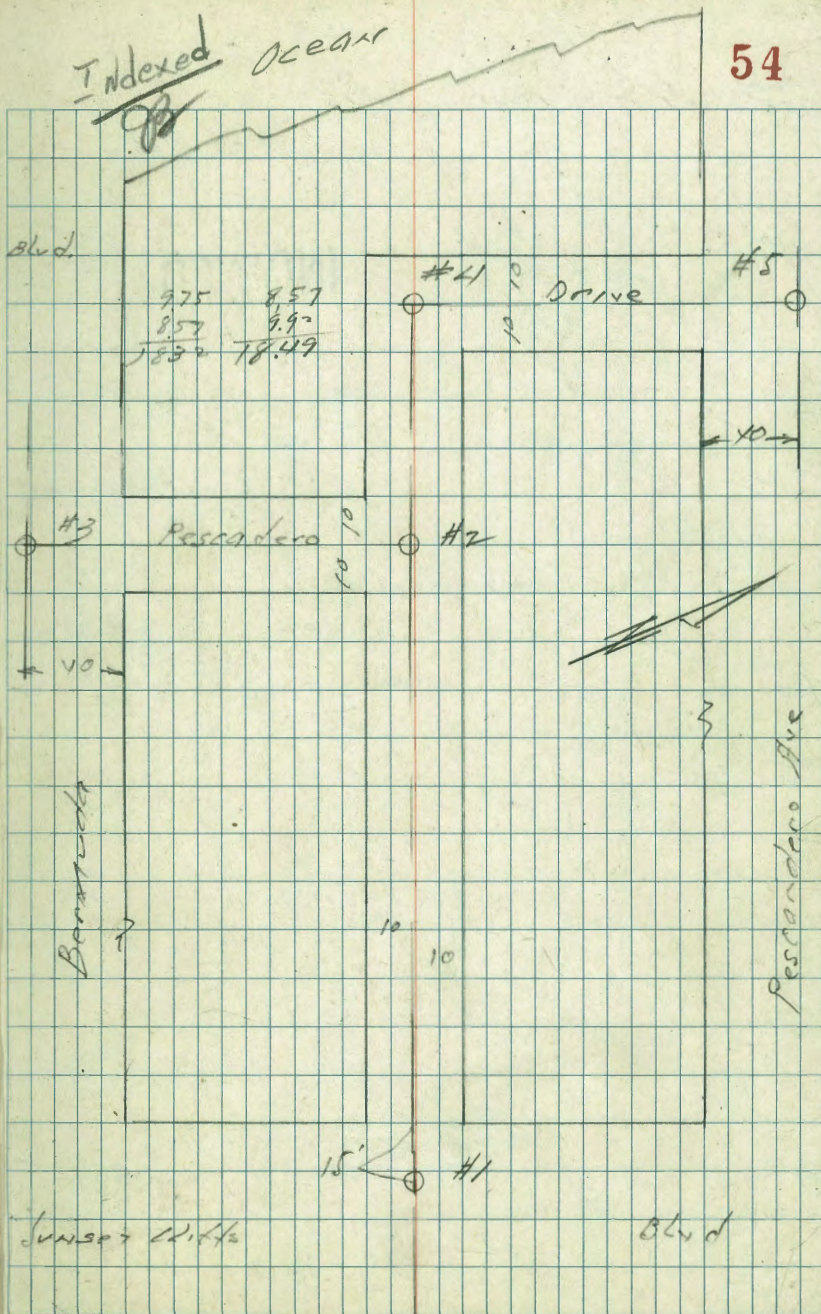 Indexed
Ocean
54
Blvd.
9.75 8.57
8.57 9.92
18.32 18.49
#4
10
10
Drive
#5
40
#3
Pescadero
10
10
#2
40
Bermuda
Pescadero Ave
10
10
15'
#1
Sunset Cliffs
Blvd